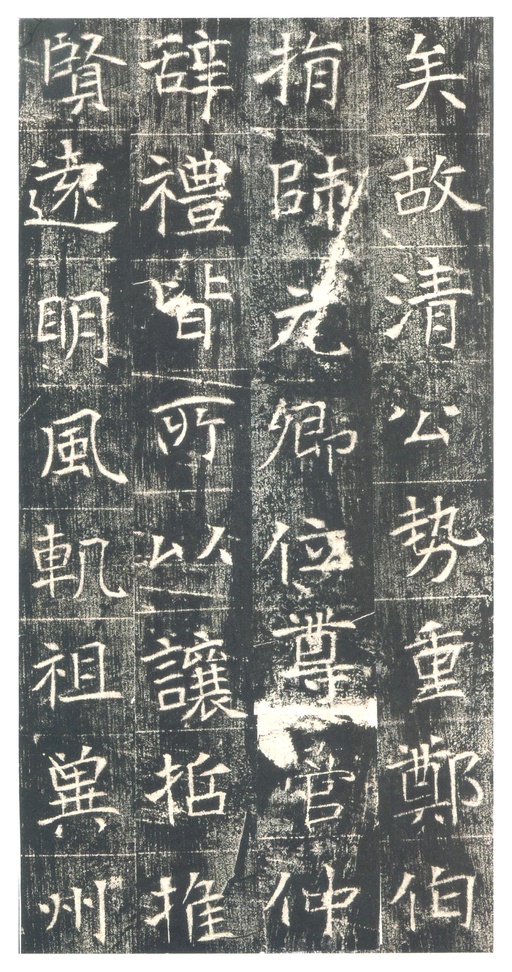 矣故清公勢重鄭伯
捐師元卿位尊管仲
辭禮皆所以讓哲推
賢遠明風軌祖冀州